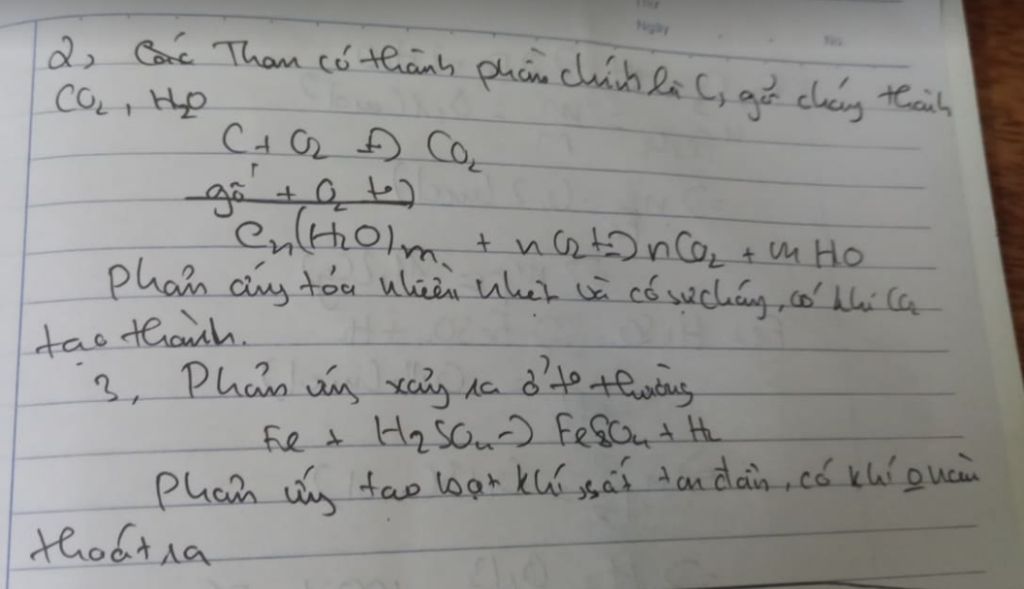 Thứ
Ngày
No.
2, Than có thành phần chính là C, gỗ cháy thành
CO2, H2O
C + O2 t°→ CO2
gỗ + O2 t°→
Cn(H2O)m + nO2 t°→ nCO2 + m HO
Phản ứng tỏa nhiều nhiệt và có sự cháy, có khí CO2
tạo thành.
3, Phản ứng xảy ra ở t° thường
Fe + H2SO4 → FeSO4 + H2
Phản ứng tạo loạt khí, sắt tan dần, có khí màu
thoát ra